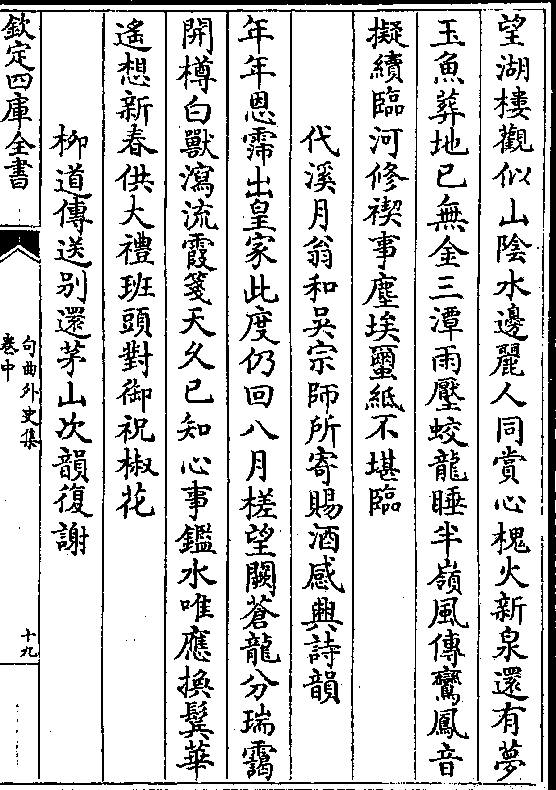 望湖樓觀似山陰水邊麗人同賞心槐火新泉還有夢
玉魚葬地已無金三潭雨壓蛟龍睡半嶺風傳鸞鳳音
擬續臨河修禊事塵埃蠒紙不堪臨
代溪月翁和吳宗師所寄賜酒感興詩韻
年年恩霈出皇家此度仍回八月槎望闕蒼龍分瑞靄
開樽白獸瀉流霞箋天久已知心事鑑水唯應換鬂華
遙想新春供大禮班頭對御祝椒花
栁道傳送别還茅山次韻復謝
欽定四庫全書
句曲外史集
卷中
十九